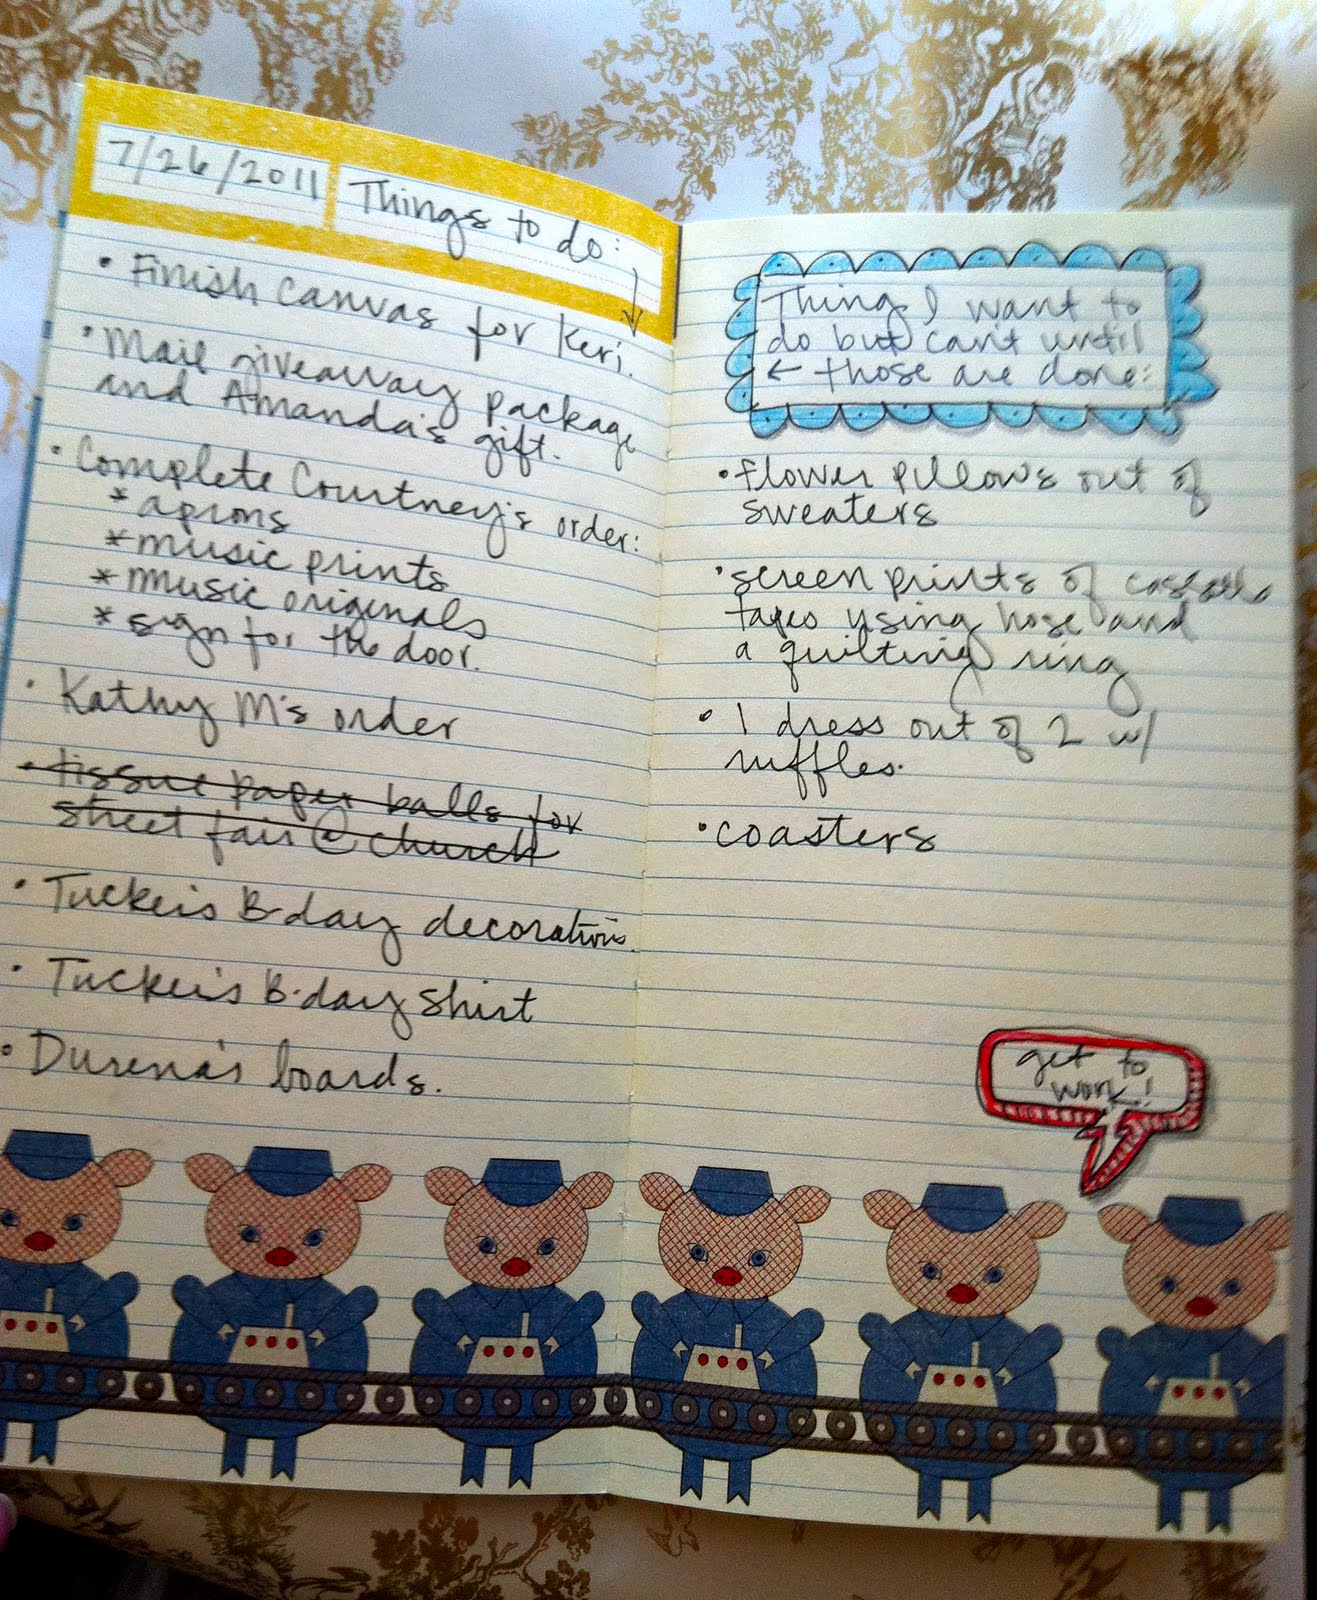 7/26/2011 Things to do:
• Finish canvas for Keri.
• Mail giveaway package
and Amanda's gift.
• Complete Courtney's order:
* aprons
* music prints
* music originals
* sign for the door.
• Kathy M's order
• tissue paper balls for
street fair @ church
• Tucker's B-day decorations.
• Tucker's B-day shirt
• Durena's boards.
Thing I want to
do but can't until
← those are done:
• flower pillows out of
sweaters
• screen prints of cassette
tapes using hose and
a quilting ring
• 1 dress out of 2 w/
ruffles.
• coasters
get to
work!